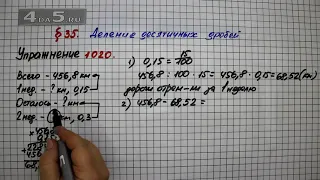 4DA5.RU
§ 35. Деление десятичных дробей
Упражнение 1020.
Всего - 456,8 км
1 нед. - ? км, 0,15
Осталось - ? км
2 нед. - км, 0,3
1) 0,15 = 15/100
456,8 : 100 · 15 = 456,8 · 0,15 = 68,52 (км)
за 1 неделю
2) 456,8 - 68,52 =